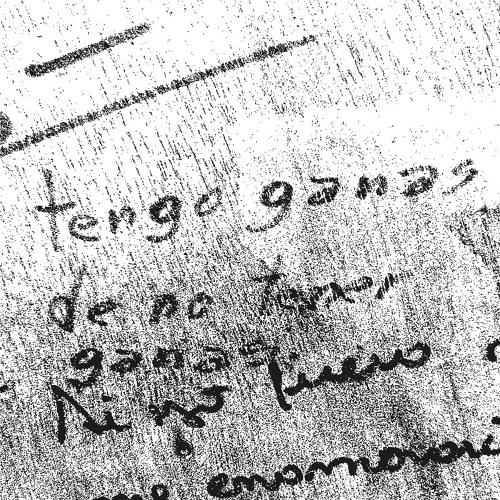 tengo ganas
de no tener
ganas.
Ni no quiero
me enamorari